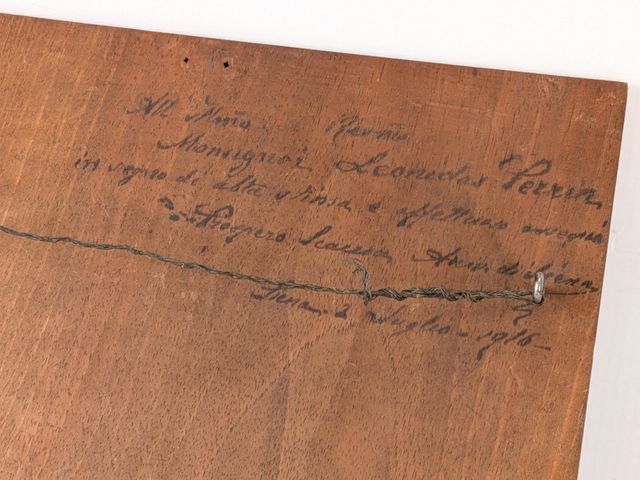 All' Illmo. e Revmo
Monsignor Leonidas Perrin
in segno di alta stima e affettuoso ossequio
Prospero Scaccia Arciv. di Siena
Siena 2 Luglio - 1916 -